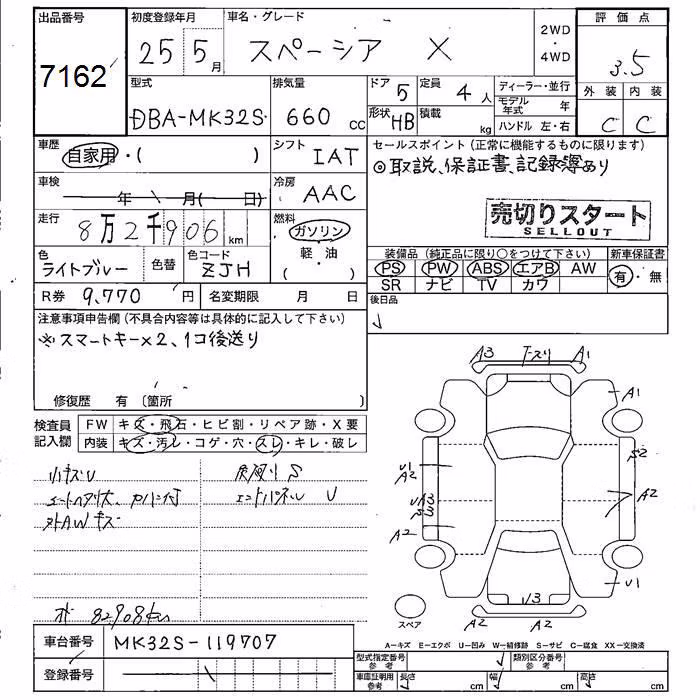 出品番号
7162
初度登録年月
25 5月
車名・グレード
スペーシア X
2WD
・
4WD
評価点
3.5
外装 内装
C C
型式
DBA-MK32S
排気量
660 cc
ドア 5
形状 HB
定員 4人
積載 kg
ディーラー・並行
モデル年式 年
ハンドル 左・右
車歴
自家用・( )
シフト IAT
車検 年 月( 日)
冷房 AAC
走行 8万2千906km
燃料 ガソリン
軽・油
( )
色
ライトブルー
色替
色コード
ZJH
R券 9,770円
名変期限 月 日
セールスポイント(正常に機能するものに限ります)
◎取説、保証書、記録簿あり
売切りスタート
SELLOUT
装備品(純正品に限り○をつけて下さい)
新車保証書
PS PW ABS エアB AW
有・無
SR ナビ TV カワ
後日品
注意事項申告欄(不具合内容等は具体的に記入して下さい)
※スマートキー×2、1コ後送り
修復歴 有 (箇所 )
検査員記入欄
FW キズ・飛石・ヒビ割・リペア跡・X要
内装 キズ・汚レ・コゲ・穴・スレ・キレ・破レ
小キズU
外AWキズ
S
U
82908km
A3 A1
A1
U1
A2
S2
A2
UA3
A2
U3
U1
A2 A2
スペア
A-キズ E-エクボ U-凹み W-補修跡 S-サビ C-腐食 XX-交換済
車台番号 MK32S-119707
登録番号
型式指定番号
参考
類別区分番号
参考
車庫証明用
参考
長さ cm 幅 cm 高さ cm